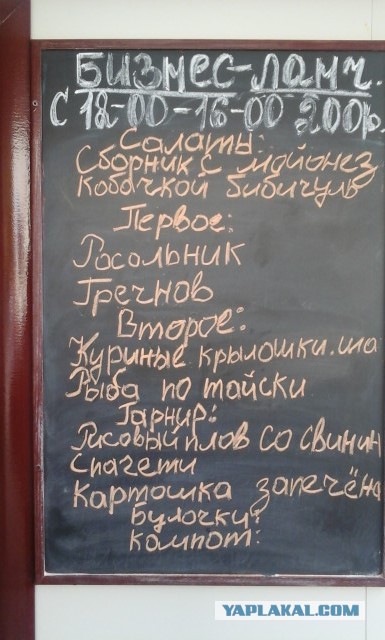 БИЗНЕС-ЛАНЧ.
С 12-00-16-00 200р.
Салаты:
Сборник с майонез
Кобачкой бибичуль
Первое:
Росольник
Гречнов
Второе:
Куриные крылошки.ша
Рыба по тайски
Гарнир:
Рисовый плов со свинин
Спагети
Картошка запечёна
Булочки:
Компот:
YAPLAKAL.COM